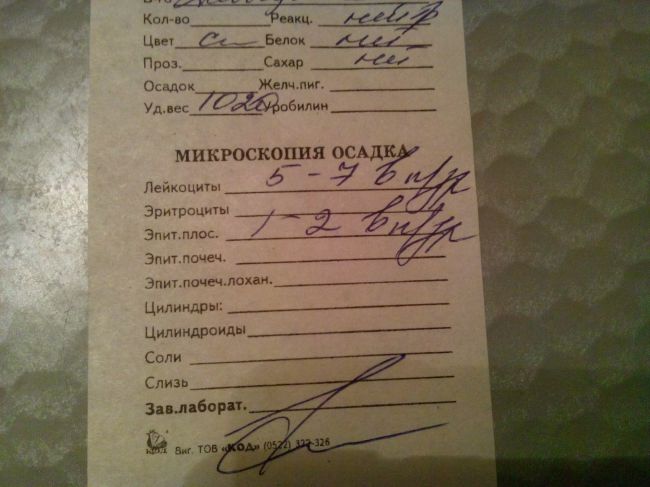 Кол-во Реакц. нейтр
Цвет Белок
Проз. Сахар
Осадок Желч.пиг.
Уд.вес 1020 Уробилин
МИКРОСКОПИЯ ОСАДКА
Лейкоциты 5-7 в п/зр
Эритроциты
Эпит.плос. 1-2 в п/зр
Эпит.почеч.
Эпит.почеч.лохан.
Цилиндры:
Цилиндроиды
Соли
Слизь
Зав.лаборат.
КОД Виг. ТОВ «КОД» (0522) 322-326